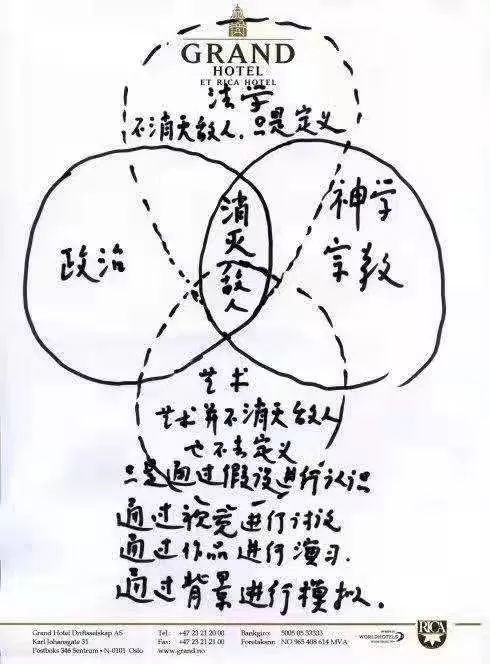 GRAND
HOTEL
ET RICA HOTEL
法学
不消灭敌人，只是定义
政治
消灭敌人
神学
宗教
艺术
艺术并不消灭敌人
也不去定义
只是通过假设进行认识
通过视觉进行讨论
通过作品进行演习.
通过背景进行模拟.
Grand Hotel Driftsselskap AS
Karl Johansgate 31
Postboks 346 Sentrum • N-0101 Oslo
Tel: +47 23 21 20 00
Fax: +47 23 21 21 00
www.grand.no
Bankgiro: 5005 05 53533
Foretaksnr. NO 965 408 614 MVA
WORLDHOTELS
RICA